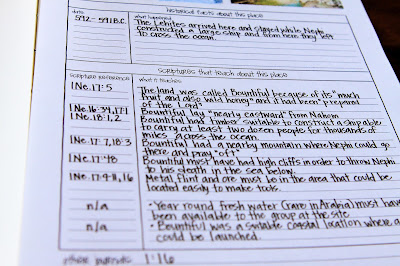 historical facts about this place
date
what happened
592-591 B.C.
The Lehites arrived here and stayed while Nephi
constructed a large ship and from here they left
to cross the ocean.
scriptures that teach about this place
scripture reference
what it teaches
1 Ne. 17:5
The land was called Bountiful because of its "much
fruit and also wild honey" and it had been "prepared
of the Lord"
1 Ne. 16:34, 17:1
Bountiful lay "nearly eastward" from Nahom
1 Ne. 18:1,2
Bountiful had timber suitable to construct a ship able
to carry at least two dozen people for thousands of
miles across the ocean.
1 Ne. 17:7, 18:3
Bountiful had a nearby mountain where Nephi could go
there and pray "oft"
1 Ne. 17:48
Bountiful must have had high cliffs in order to throw Nephi
to his death in the sea below.
1 Ne. 17:9-11, 16
Metal flint and ore must be in the area that could be
located easily to make tools.
n/a
• Year round fresh water (rare in Arabia) must have
been available to the group at the site.
n/a
• Bountiful was a suitable coastal location where a
could be launched.